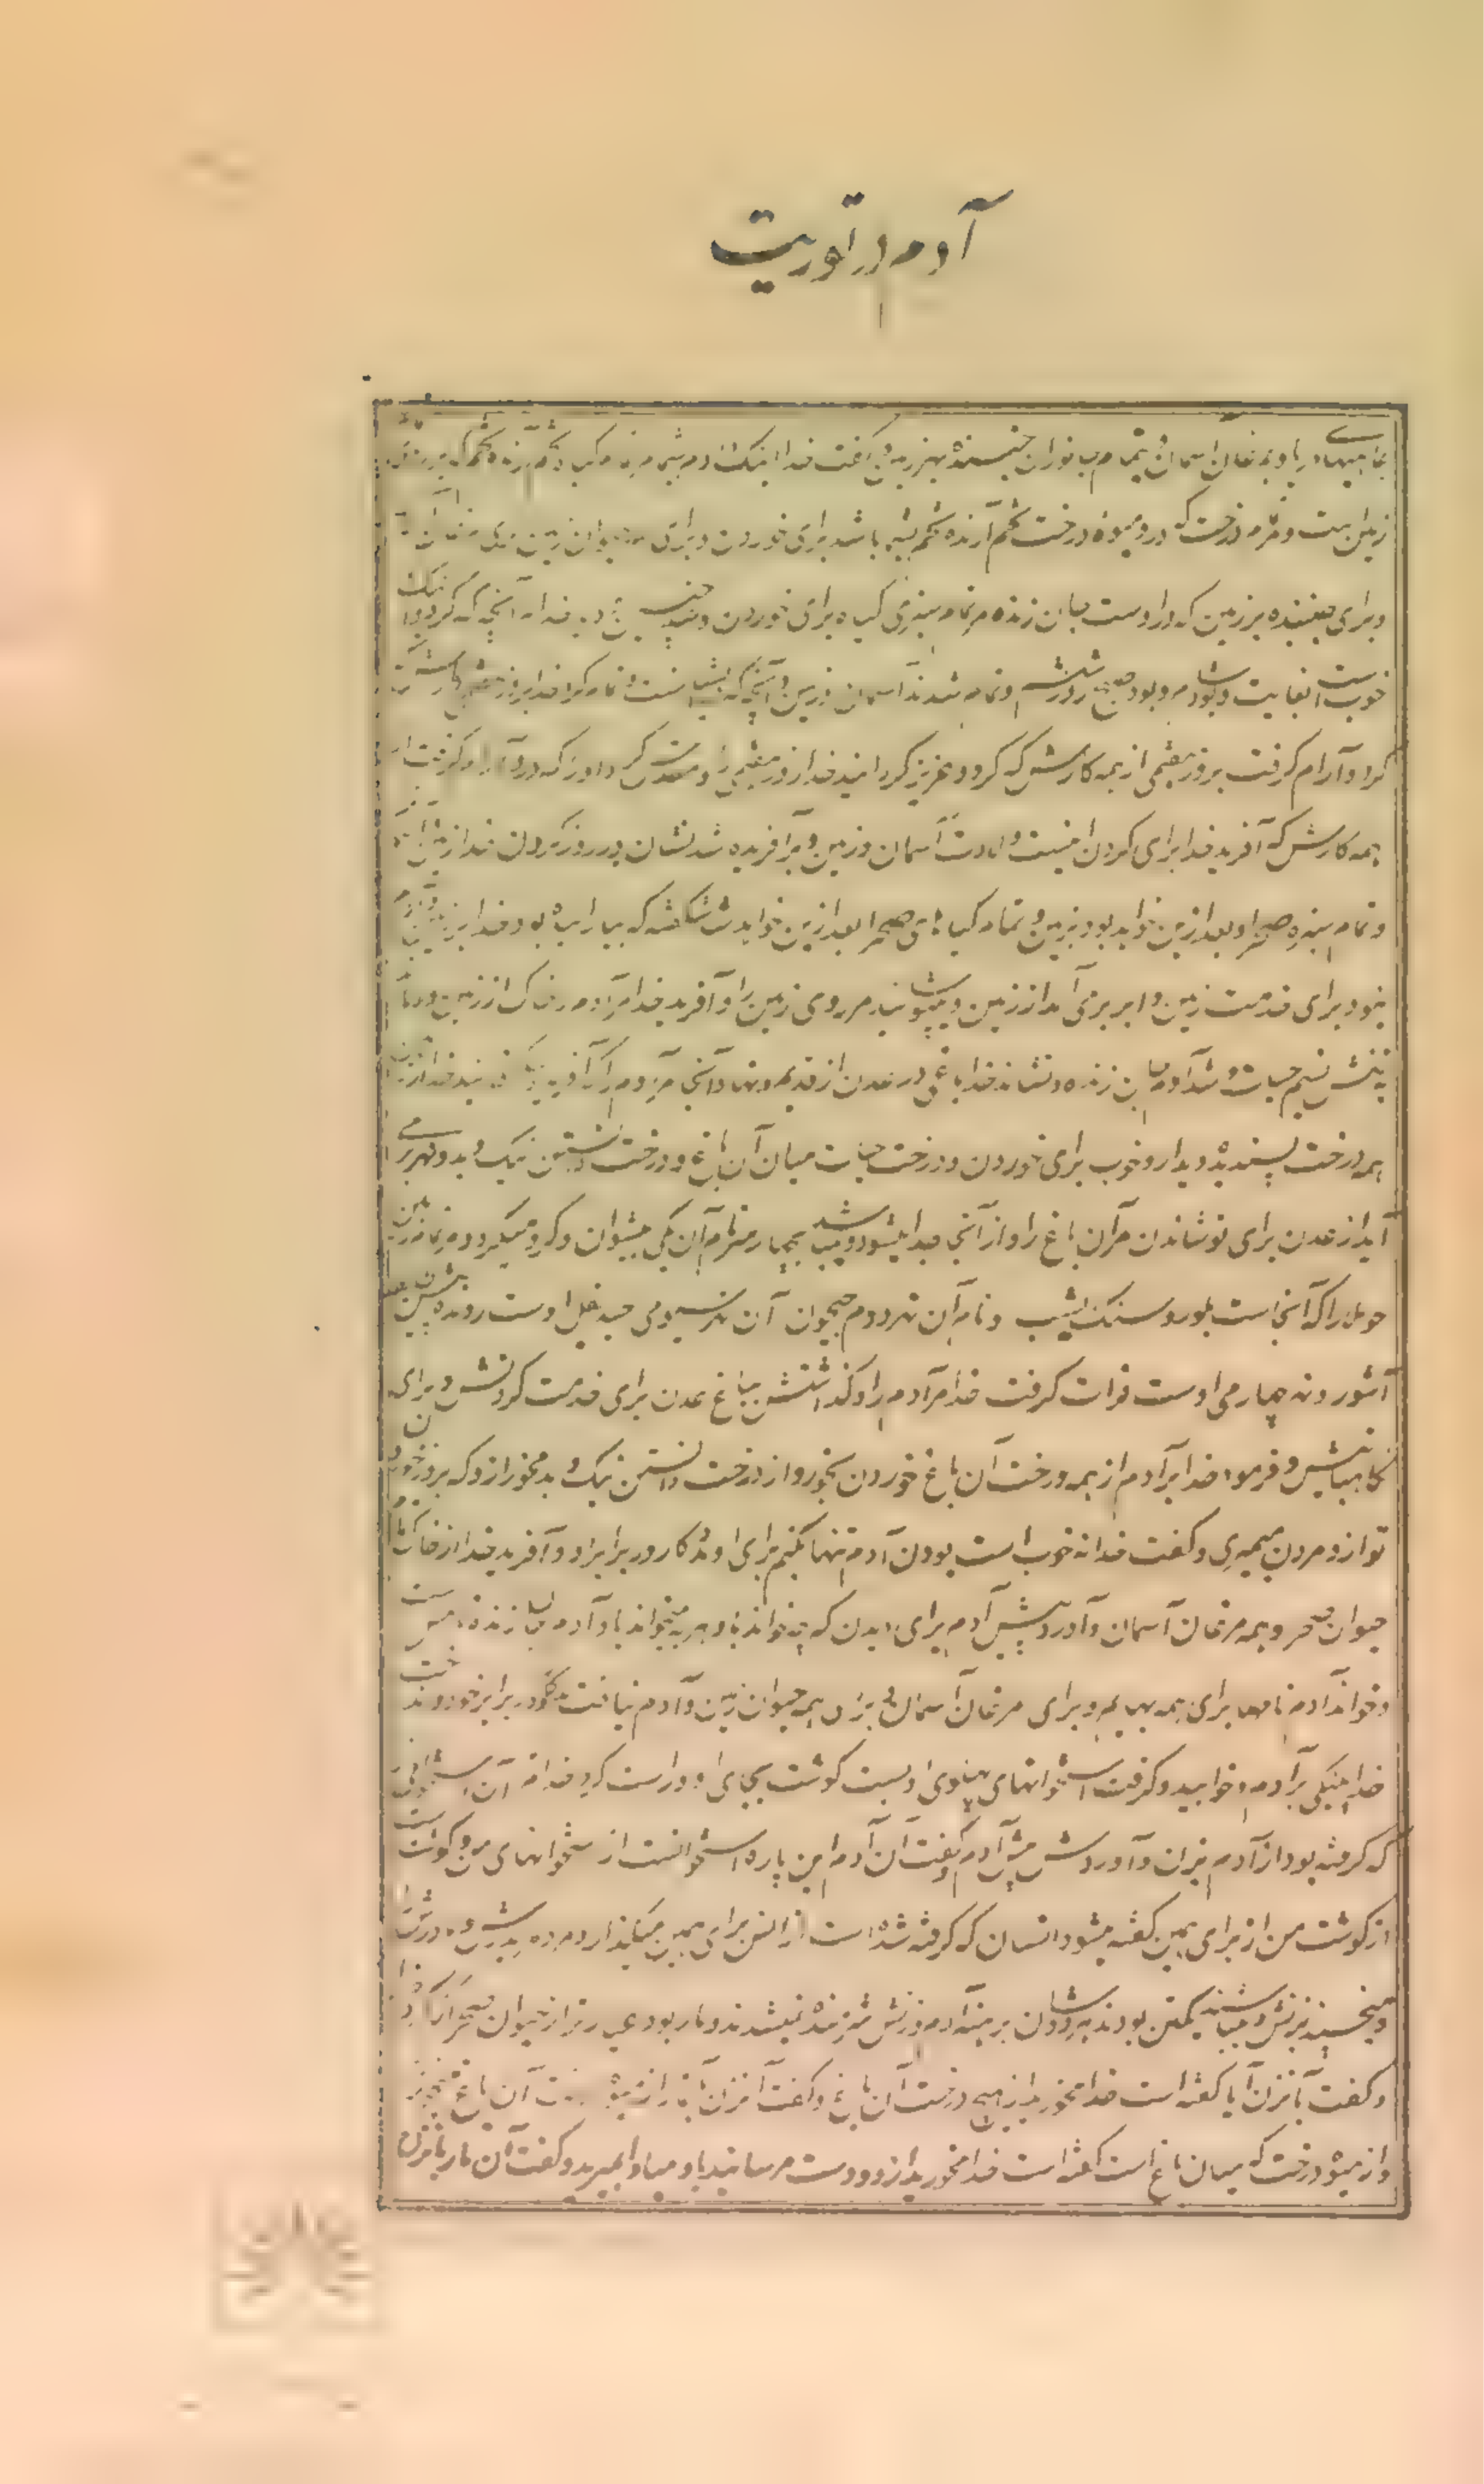 آدم در توریت
۱
بماهیهاء دریا و بمرغان آسمان و بتمام جانوران جنبنده بر زمین و گفت خدا اینک دادم بشما
زمین است و مر همه درخت که درو میوهٔ درخت تخم آرنده تخم بشما باشد برای خوردن و برای
و برای جنبنده بر زمین که در اوست جان زنده مر تمام سبزی گیاه برای خوردن و شد چنین و دید خدا مر آنچه که کرد و اینک
خوبست بغایت و بود شام و بود صبح روز ششم و تمام شدند آسمان و زمین و تمام کرد خدا بروز
کرد و آرام گرفت بروز هفتمی از همه کارش که کرد و عزیز گردانید خدا روز هفتمی را و مقدس کرد او را که درو آرام گرفت از
همه کارش که آفرید خدا برای کردن اینست ولادت آسمان و زمین در آفریده شدنشان در روز کردن خدا زمین
و تمام سبزه صحرا بعد ازین خواهد بود بزمین و تمام گیاه صحرا بعد ازین خواهد شکفت که نبارانیده بود خدا بر زمین
نبود برای خدمت زمین و ابر بر می آمد از زمین و میپوشانید مر روی زمین را و آفرید خدا مر آدم خاک از زمین و دمید
به بینیش نسیم حیات و شد آدم جان زنده و نشاند خدا باغی در عدن از قدیم و نهاد آنجا مر آدم را که آفرید
همه درخت پسندیده دیدار و خوب برای خوردن و درخت حیات میان آن باغ و درخت دانستن نیک و بد و نهر برمی
آید از عدن برای نوشاندن مر آن باغ را و از آنجا جدا میشود و میباشد بچهار سر نام آن یکی پیشون و گرد میگیرد مر تمام زمین
حویلا را که آنجا است بلور و سنگ یشب و نام آن نهر دوم جیحون آن نهر سیومی حیدقل اوست رونده پیش
آشور و نهر چهارمی اوست فرات گرفت خدا مر آدم را و گذاشتش بباغ عدن برای خدمت کردنش و برای
نگاهبانیش و فرمود خدا بر آدم از همه درخت آن باغ خوردن بخور و از درخت دانستن نیک و بد مخور ازو که بروز خوردن
تو ازو مردن میمیری و گفت خدا نه خوب است بودن آدم تنها بکنم برای او مددکار در برابر او و آفرید خدا از خاک
حیوان صحرا و همه مرغان آسمان و آورد پیش آدم برای دیدن که چه خواند باو هر چه میخواند باو آدم جان زنده
و خواند آدم نامها برای همه بهایم و برای مرغان آسمان و برای همه حیوان زمین و آدم نیافت مددکار در برابر خود
خدا پینکی بر آدم و خوابید و گرفت استخوانهای پهلوی او و بست گوشت بجای او و راست کرد خدا مر آن استخوان
که گرفته بود از آدم بزن و آوردش پیش آدم و گفت آن آدم این پاره استخوانست از استخوانهای من و گوشت
از گوشت من از برای همین گفته میشود انسان که گرفته شده است از انس برای همین میگذارد مرد مر پدرش و مادرش را
و میچسبد بزنش و میباشند یکتن بودند هر دوان برهنه آدم و زنش شرمنده نمیشدند و مار بود عیارتر از حیوان صحرا
و گفت با زن آیا گفته است خدا مخورید از هیچ درخت آن باغ و گفت آن زن
و از میوه درخت که میان باغ است گفته است خدا مخورید ازو و دست مرسانید باو مبادا بمیرید و گفت آن مار با زن